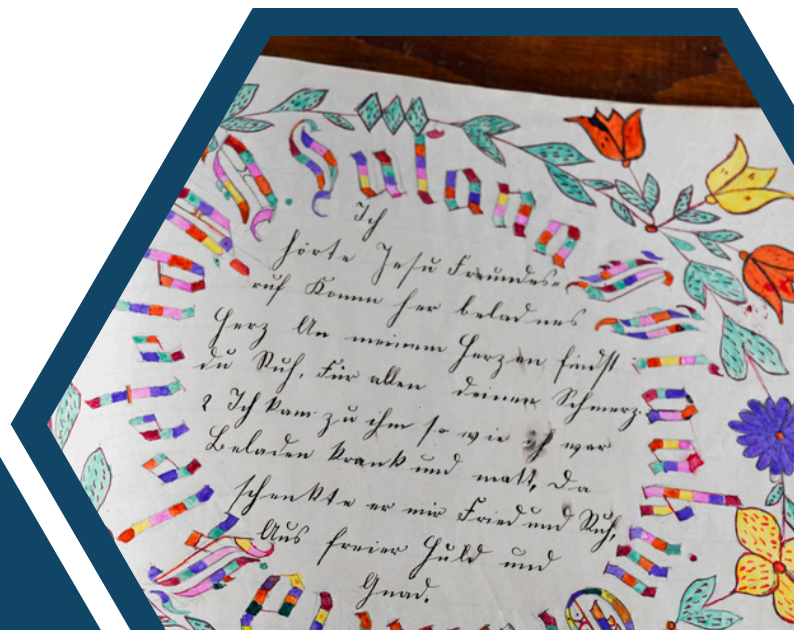 Ich
hörte Jesu Freundes-
ruf Komm her beladnes
Herz An meinem Herzen findst
du Ruh, Für allen deinen Schmerz.
2 Ich kam zu ihm so wie ich war
Beladen krank und matt, Da
schenkte er mir Fried und Ruh,
Aus freier Huld und
Gnad.